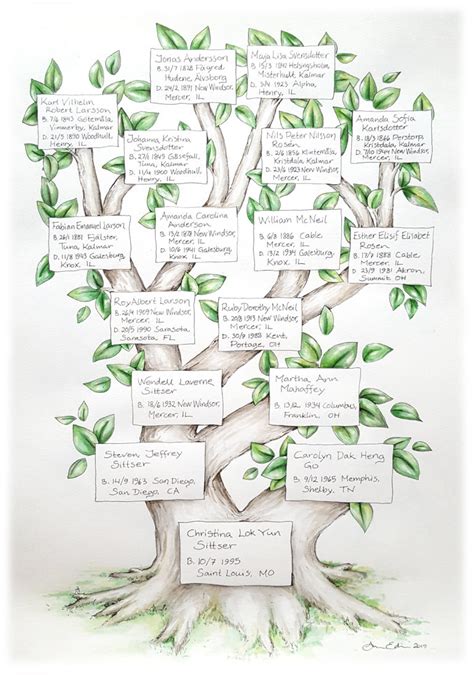 Jonas Andersson
B. 31/7 1828 Fägred
Hudene, Älvsborg
D. 24/2 1891 New Windsor,
Mercer, IL
Maja Lisa Svensdotter
B. 15/3 1840 Helgerum,
Misterhult, Kalmar
D. 5/4 1923 Alpha,
Henry, IL
Karl Vilhelm
Robert Larsson
Vimmerby, Kalmar
Henry, IL
Johanna Kristina
Svensdotter
Tuna, Kalmar
D. 11/6 1900 Woodhull,
Henry, IL
Nils Peter Nilsson
Rosén
Kristdala, Kalmar
Mercer, IL
Amanda Sofia
Karlsdotter
Kristdala, Kalmar
Mercer, IL
Fabian Emanuel Larson
B. 26/1 1881 Fjälster,
Tuna, Kalmar
D. 11/8 1943 Galesburg,
Knox, IL
Amanda Carolina
Anderson
B. 13/2 1878 New Windsor,
Mercer, IL
D. 10/6 1941 Galesburg,
Knox, IL
William McNeil
B. 6/8 1886 Cable,
Mercer, IL
D. 13/2 1934 Galesburg,
Knox, IL
Esther Elisif Elisabet
Rosen
B. 17/8 1888 Cable,
Mercer, IL
D. 23/9 1981 Akron,
Summit OH
Roy Albert Larson
B. 26/8 1909 New Windsor,
Mercer, IL
D. 20/5 1990 Sarasota,
Sarasota FL
Ruby Dorothy McNeil
B. 20/8 1913 New Windsor,
Mercer, IL
Portage, OH
Wendell Laverne
Sittser
B. 18/6 1932 New Windsor,
Mercer, IL
Martha Ann
Mahaffey
B. 13/12 1934 Columbus,
Franklin, OH
Steven Jeffrey
Sittser
B. 14/9 1963 San Diego,
San Diego, CA
Carolyn Dak Heng
Go
B. 9/12 1965 Memphis,
Shelby, TN
Christina Lok Yun
Sittser
B. 10/7 1995
Saint Louis, MO
2017